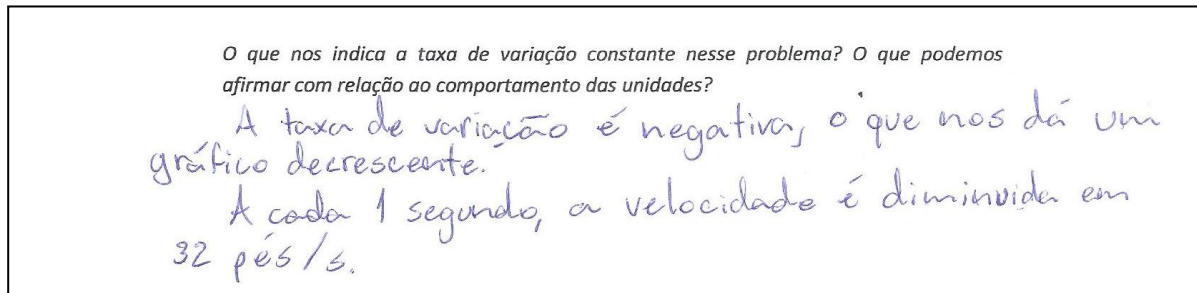 O que nos indica a taxa de variação constante nesse problema? O que podemos
afirmar com relação ao comportamento das unidades?
A taxa de variação é negativa, o que nos dá um
gráfico decrescente.
A cada 1 segundo, a velocidade é diminuida em
32 pés/s.